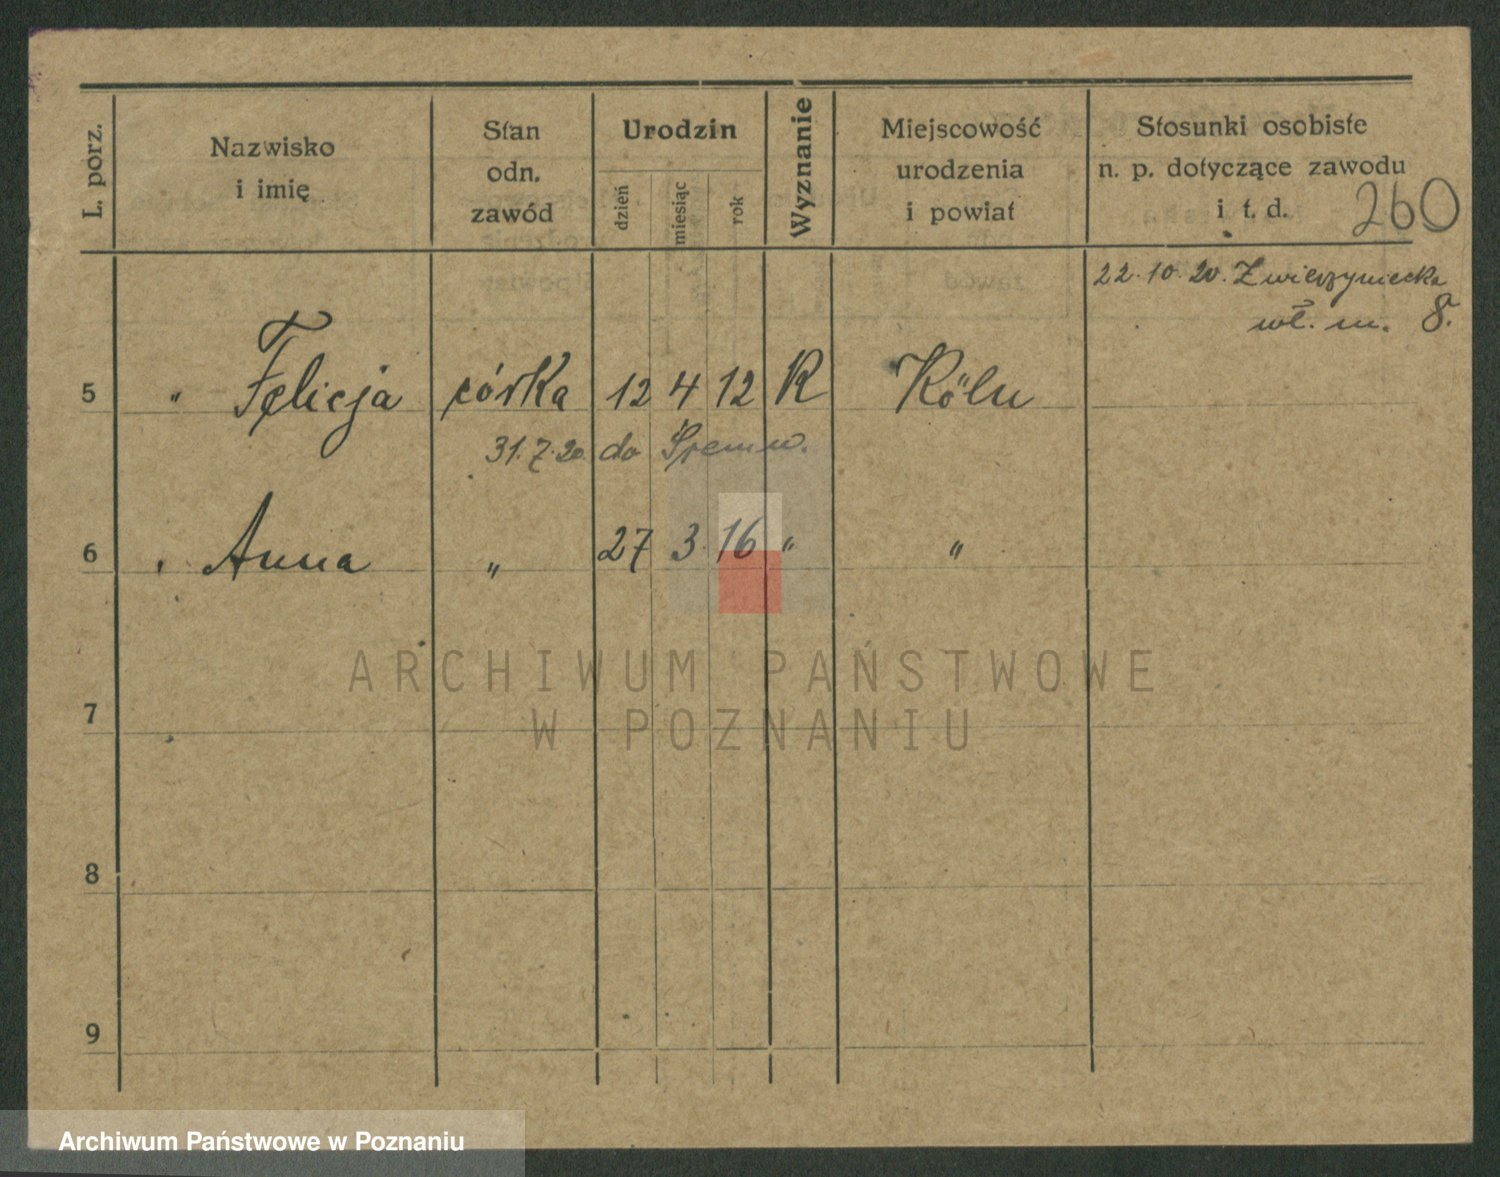 L. porz.
Nazwisko
i imię
Stan
odn.
zawód
Urodzin
dzień
miesiąc
rok
Wyznanie
Miejscowość
urodzenia
i powiat
Stosunki osobiste
n. p. dotyczące zawodu
i t. d.
260
22.10.20. Zwierzyniecka
wł. m. 8.
5 " Felicja córka 12 4 12 R Köln
31.7.20. do
6 " Anna " 27 3 16 " "
ARCHIWUM PAŃSTWOWE
W POZNANIU
7
8
9
Archiwum Państwowe w Poznaniu